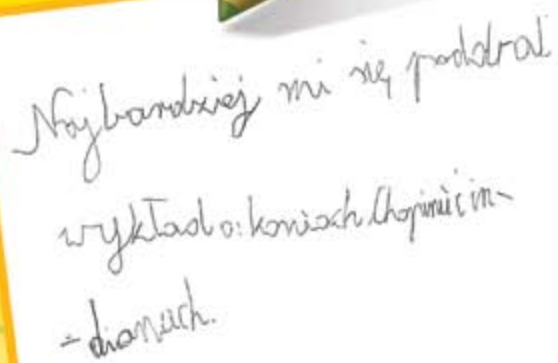 Najbardziej mi się poddrał
wykład o: koniach Chopinie i in-
-dianach.